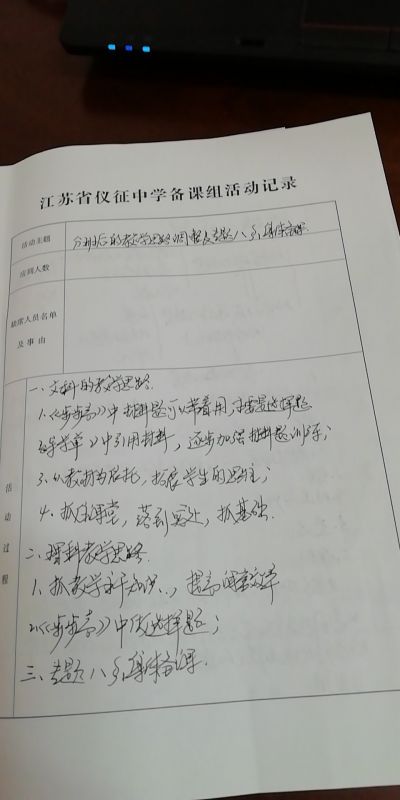 江苏省仪征中学备课组活动记录
活动主题 分班后的教学思路调整及专题八 集体备课
应到人数
缺席人员名单
及事由
活动过程
一、文科的教学思路
1.《步步高》中材料题可以带着用,注重选择题
导学单》中引用材料,逐步加强材料题训练;
3、以教材为依托,拓展学生的思维;
4、抓住课堂,落到实处,抓基础.
二、理科教学思路
1、抓教学水平知识.,提高课堂效率
2.《步步高》中仅选择题;
三、专题八 集体备课.